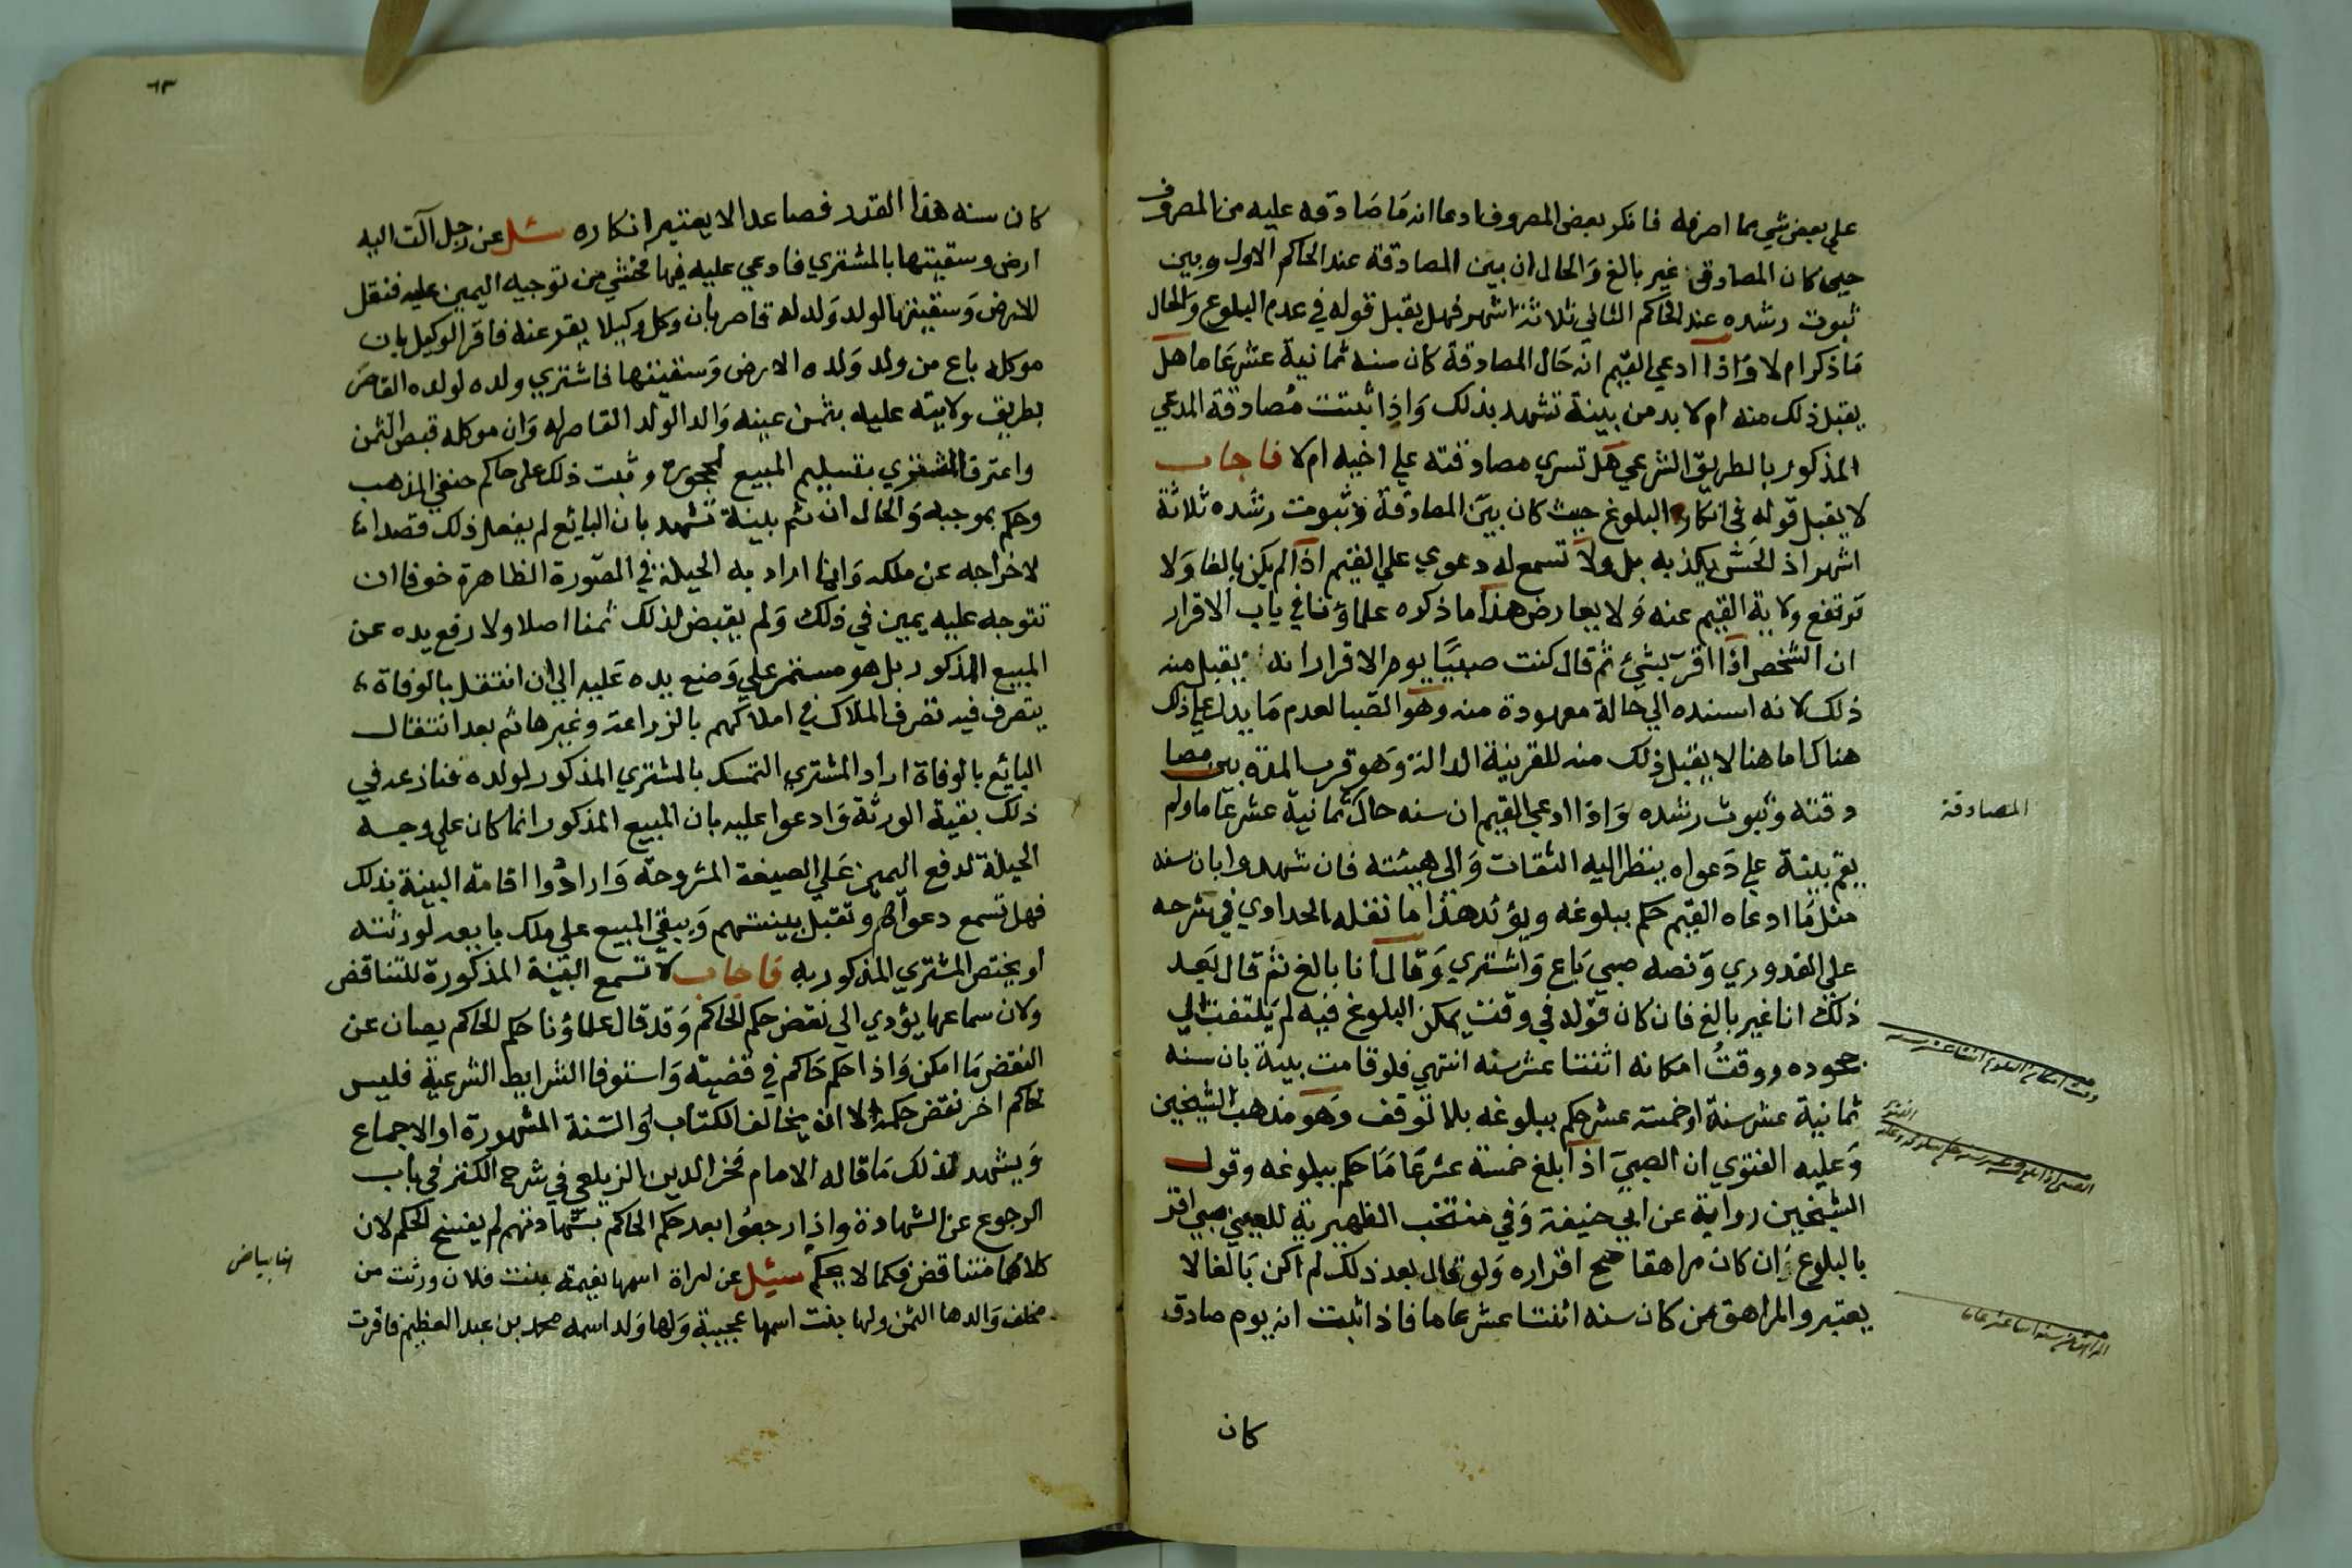 على بعض شي مما اصرفه فانكر بعض المصروف وادعا انه مَا صَادقه عليه من المصروف
حين كان المصادق غير بالغ وَالحال ان بين المصادقة عند الحاكم الاول وبين
ثبوت رشده عند الحاكم الثاني ثلاثة اشهر فهل يقبل قوله في عدم البلوغ والحال
مَا ذكر ام لا وَاذا ادعي القيم انه حَال المصادقة كان سنه ثمانية عشر عَاما هل
يقبل ذلك منه ام لا بد من بينة تشهد بذلك وَاذا ثبتت مُصادقة المدعي
المذكور بالطريق الشرعي هل تسري مصادقته علي اخيه ام لا فاجاب
لا يقبل قوله في انكاره البلوغ حيث كان بين المصادقة وثبوت رشده ثلاثة
اشهر اذ الحس يكذبه بل ولا تسمع له دعوي علي القيم اذا لم يكن بالغا وَلا
ترتفع ولاية القيم عنه وَلا يعارض هذا ما ذكره علماؤنا في باب الاقرار
ان الشخص اذا اقر بشئ ثم قال كنت صبيًا يوم الاقرار انه يقبل منه
ذلك لانه اسنده الي حالة معهودة منه وهو الصبا لعدم مَا يدل علي ذلك
هناك اما هنا لا يقبل ذلك منه للقرينة الدالة وَهو قرب المدة بين مصا
دقته وثبوت رشده وَاذا ادعي القيم ان سنه حال ثمانية عشر عَاما ولم
يقم بينة علي دَعواه ينظر اليه الثقات وَالى هيئته فان شهدوا بان سنه
مثل مَا ادعاه القيم حكم ببلوغه ويؤيد هذا ما نقله الحدادي في شرحه
على القدوري وَنصه صبي بَاع وَاشتري وَقال انا بالغ ثم قال بَعد
ذلك انا غير بالغ فان كان قوله في وقت يمكن البلوغ فيه لم يَلتفت الي
جحوده ووقتُ امكانه اثنتا عشر سنه انتهي فلو قامت بينة بان سنه
ثمانية عشر سنة او خمسة عشر حكم ببلوغه بلا توقف وَهو مذهب الشيخين
وَعليه الفتوي ان الصبيَ اذا بلغ خمسة عشر عَامَا حكم ببلوغه وقول
الشيخين رواية عن ابي حنيفة وَفي منتخب الظهيرية للعيني صبي اقر
بالبلوغ وَان كان مراهقا صح اقراره وَلو قال بعد ذلك لم اكن بَالغا لا
يعتبر والمراهق من كان سنه اثنتا عشر عاما فاذا ثبت انه يوم صادق
المصادقة
وقت امكان البلوغ اثنتا عشر سنه
كان
٦٣
كان سنه هذا القدر فصاعدا لا يعتبر انكاره سئل عن رجل آلت اليه
ارض وسقيتها بالمشتري فادعي عليه فيها فخشي من توجيه اليمين عليه فنقل
الارض وَسقيتها لولد وَلد له قاصر بان وكل وكيلا يقر عنه فاقر الوكيل بان
موكله باع من ولد وَلده الارض وَسقيتها فاشتري ولده لولده القاصَر
بطريق ولايته عليه بثمن عينه وَالد الولد القاصر له وَان موكله قبض الثمن
واعترف المشتري بتسليم المبيع لمحجوره وثبت ذلك على حاكم حنفي المذهب
وحكم بموجبه وَالحال ان ثم بينة تشهد بان البائع لم يفعل ذلك قصدا منه
لاخراجه عن ملكه وَانما اراد به الحيلة في الصورة الظاهرة خوفا ان
تتوجه عليه يمين في ذلك وَلم يقبض لذلك ثمنا اصلا ولا رفع يده عن
المبيع المذكور بل هو مستمر علي وَضع يده عَليه الي ان انتقل بالوفاة
يتصرف فيه تصرف الملاك في املاكهم بالزراعة وغيرها ثم بعد انتقال
البائع بالوفاة اراد المشتري التمسك بالمشتري المذكور لولده فنازعه في
ذلك بقية الورثة وَادعوا عليه بان المبيع المذكور انما كان علي وجه
الحيلة لدفع اليمين عَلي الصيغة المشروحة وَارادُوا اقامة البينة بذلك
فهل تسمع دعواهم وتقبل بينتهم وَيبقي المبيع علي ملك بايعه لورثته
او يختص المشتري المذكور به فاجاب لا تسمع البينة المذكورة للتناقض
ولان سماعها يؤدي الي نقض حكم الحاكم وَقد قال علماؤنا حكم الحاكم يصان عن
النقض مَا امكن وَاذا حكم حَاكم في قضية وَاستوفا الشرايط الشرعية فليس
لحاكم اخر نقض حكمه الا ان يخالف الكتاب اوَ السنة المشهورة او الاجماع
وَيشهد لذلك مَا قاله الامام فخر الدين الزيلعي في شرح الكنز في باب
الرجوع عن الشهادة واذا رجعوا بعد حكم الحاكم بشهادتهم لم يفسخ الحكم لان
كلامهما متناقض فكما لا يحكم سئيل عن امراة اسمها نغيمة بنت فلان ورثت من
مخلف وَالدها الثمن ولها بنت اسمها عجيبة وَلها وَلد اسمه محمد بن عبد العظيم فاقرت
هنا بياض